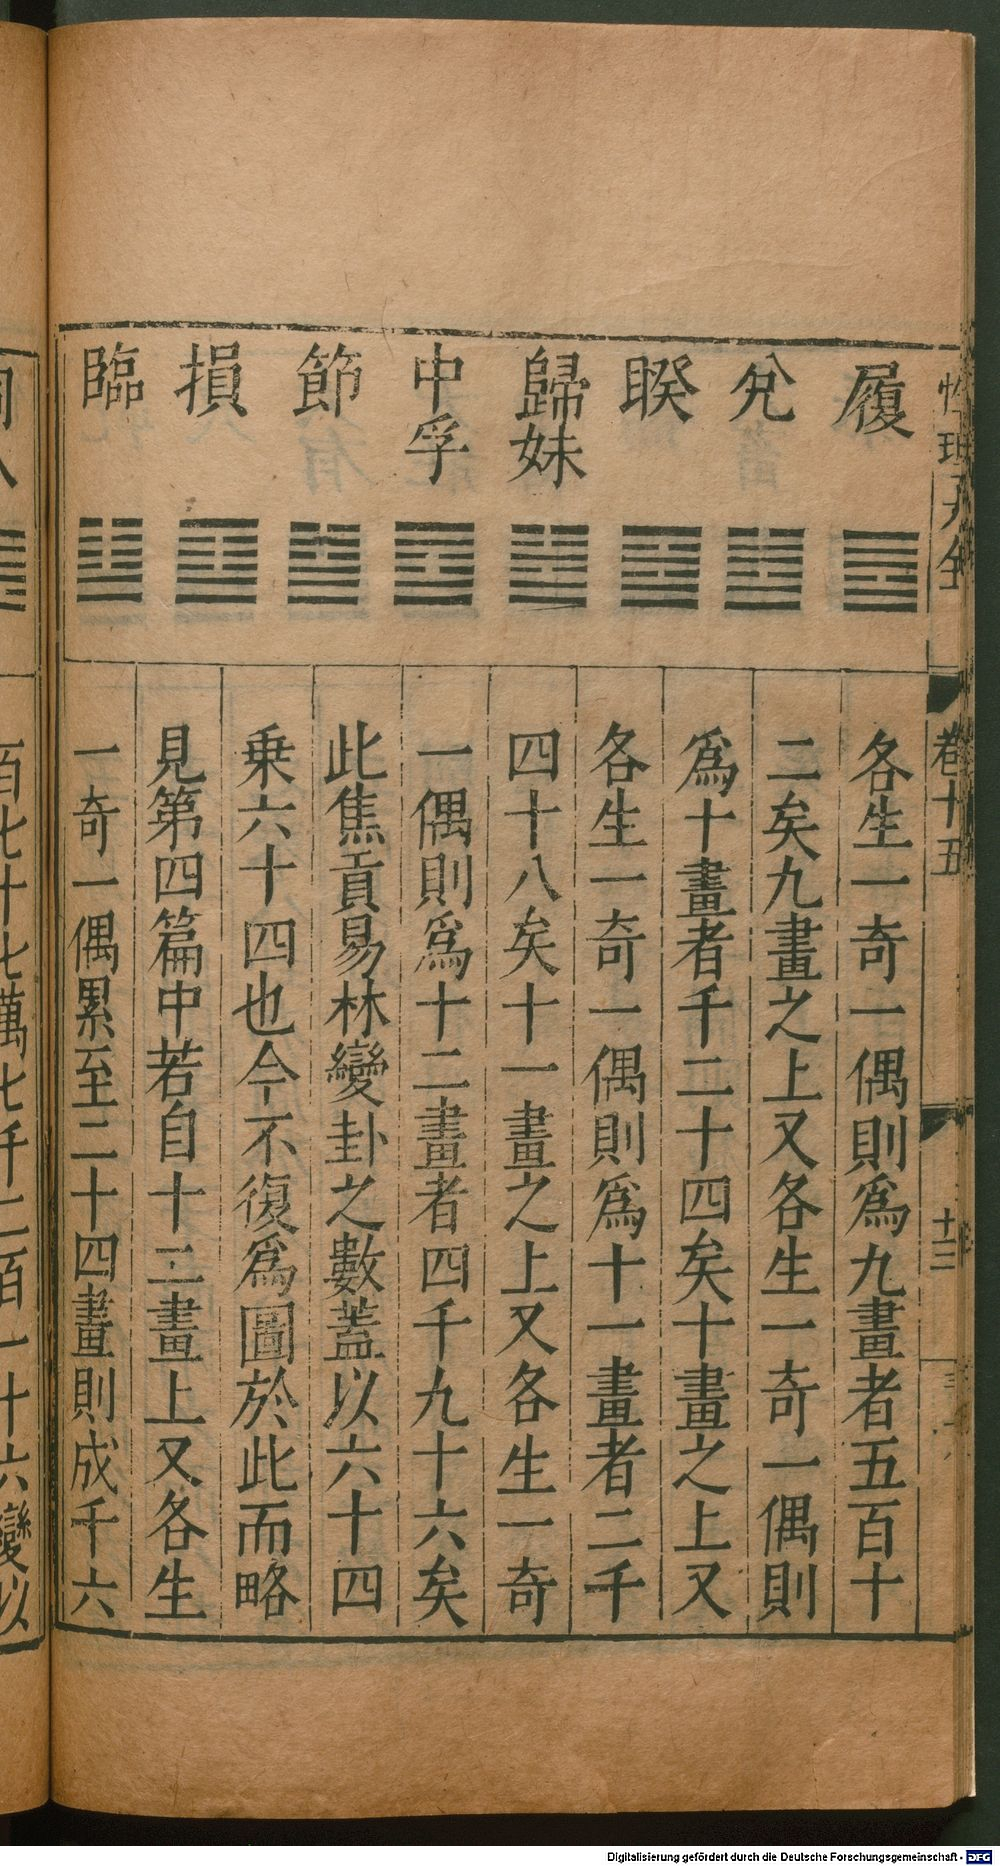 性理大全
卷十五
十三
履
兊
睽
歸妹
中孚
節
損
臨
各生一奇一偶則爲九畫者五百十
二矣九畫之上又各生一奇一偶則
爲十畫者千二十四矣十畫之上又
各生一奇一偶則爲十一畫者二千
四十八矣十一畫之上又各生一奇
一偶則爲十二畫者四千九十六矣
此焦貢易林變卦之數蓋以六十四
乗六十四也今不復爲圖於此而略
見第四篇中若自十二畫上又各生
一奇一偶累至二十四畫則成千六
百七十七萬七千二百一十六變以
Digitalisierung gefördert durch die Deutsche Forschungsgemeinschaft - DFG